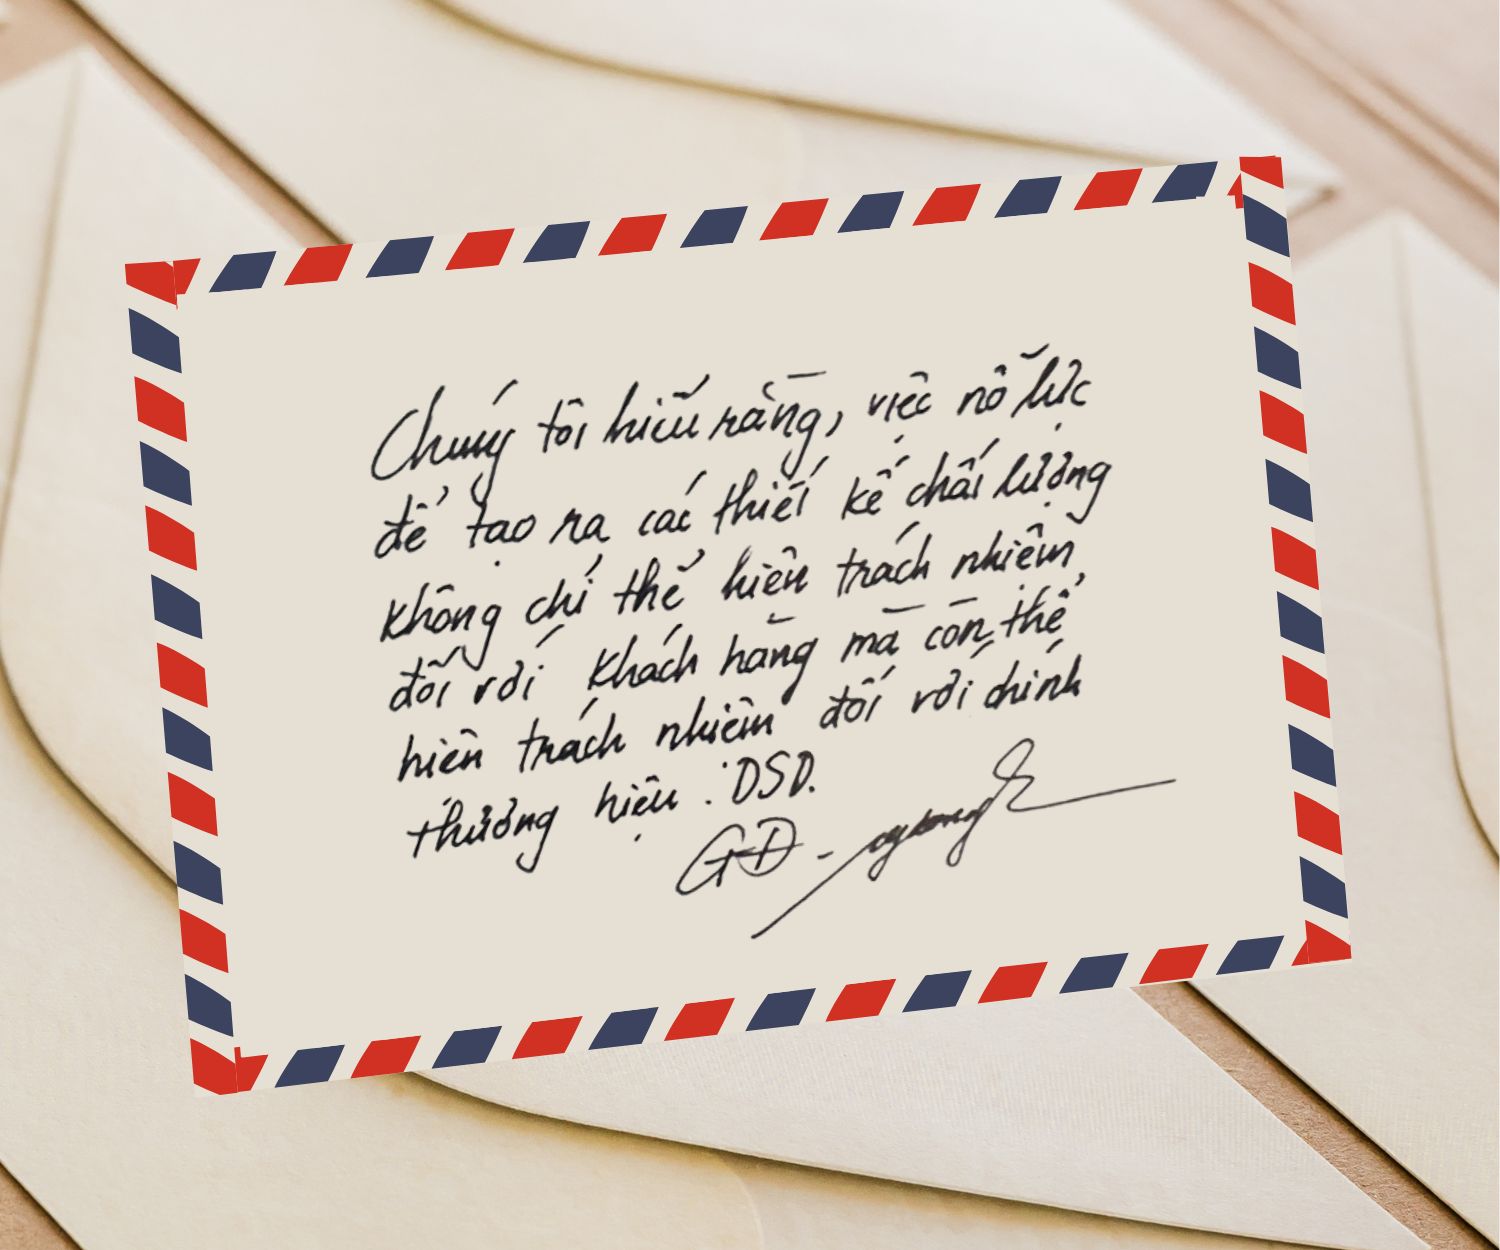 Chúng tôi hiểu rằng, việc nỗ lực
để tạo ra các thiết kế chất lượng
không chỉ thể hiện trách nhiệm
đối với khách hàng mà còn thể
hiện trách nhiệm đối với chính
thương hiệu DSD.
GĐ -